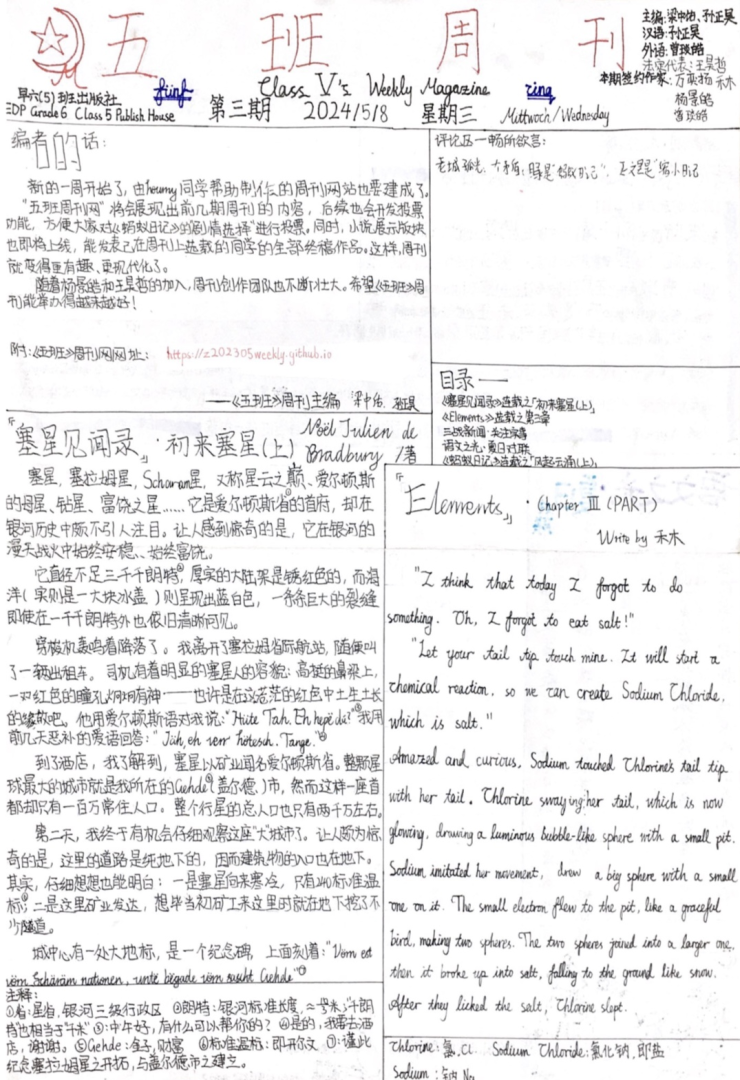 五班周刊
主编:梁中怡、孙正昊
汉语:孙正昊
外语:曾玖皓
法定代表:王昊哲
本期签约作家:万英扬 禾木
杨景皓
曾玖皓
早六(5)班出版社
fünf
Class V's Weekly Magazine
cinq
EDP Grade6 Class 5 Publish House
第三期 2024/5/8 星期三 Mittwoch/Wednesday
编者的话:
新的一周开始了,由houmy同学帮助制作的周刊网站也要建成了。
“五班周刊网”将会展现出前几期周刊的内容,后续也会开发投票
功能,方便大家对《蚂蚁日记》的剧情选择”进行投票。同时,小说展示版块
也即将上线,能发表已在周刊上连载的同学的全部终稿作品。这样,周刊
就变得更有趣、更现代化了。
随着杨景皓和王昊哲的加入,周刊创作团队也不断壮大。希望《五班》周
刊能举办得越来越好!
附:《五班》周刊网网址: https://z202305weekly.github.io
——《五班》周刊主编
评论区—畅所欲言:
目录——
《塞星见闻录》连载之「初来塞星(上)」
《Elements》连载之第三章
三战新闻·关注实事
语文之光·夏日对联
《蚂蚁日记》连载之「风起云涌(上)」
『塞星见闻录』·初来塞星(上)
Nöel Julien de
Bradbury /著
塞星,塞拉姆星,Scharam星,又称星云之巅、爱尔顿斯
的母星、钻星、富饶之星……它是爱尔顿斯省①的首府,却在
银河历史中颇不引人注目。让人感到惊奇的是,它在银河的
漫天战火中始终安稳、始终富饶。
它直径不足三千千朗特②,厚实的大陆架是锈红色的,而海
洋(实则是一大块冰盖)则呈现出蓝白色,一条条巨大的裂缝
即使在一千千朗特外也依旧清晰可见。
穿梭机轰鸣着降落了。我离开了塞拉姆省际航站,随便叫
了一辆出租车。司机有着明显的塞星人的容貌:高挺的鼻梁上,
一对红色的瞳孔炯炯有神——也许是在这苍茫的红色中土生土长
的缘故吧。他用爱尔顿斯语对我说:“Hüte Tah. Eh hepë di?”③我用
前几天恶补的爱语回答:“Jüh, eh verr hötesch. Tange.”④
到了酒店,我了解到,塞星以矿业闻名爱尔顿斯省。整颗星
球最大的城市就是我所在的Gehde⑤(盖尔德)市,然而这样一座首
都却只有一百万常住人口。整个行星的总人口也只有两千万左右。
第二天,我终于有机会仔细观察这座“大”城市了。让人颇为惊
奇的是,这里的道路是纯地下的,因而建筑物的入口也在地下。
其实,仔细想想也能明白:一是塞星向来寒冷,只有240标准温
标⑥;二是这里矿业发达,想毕当初矿工来这里时就在地下挖了不
少隧道。
城中心有一处大地标,是一个纪念碑,上面刻着:“Vöm est
vöm Schäräm nationen, untë bëgade vöm suscht Gehde”⑦
主释:
①省:星省,银河三级行政区 ②朗特:银河标准长度,≈1米,“千朗
特”也相当于“千米” ③:中午好,有什么可以帮你的? ④是的,我要去酒
店,谢谢。⑤Gehde:金子,财富 ⑥标准温标:即开尔文 ⑦:谨此
纪念塞拉姆星之开拓,与盖尔德市之建立。
『Elements』· Chapter III (PART)
Write by 禾木
"I think that today I forgot to do
something. Oh, I forgot to eat salt!"
"Let your tail tip touch mine. It will start a
chemical reaction, so we can create Sodium Chloride,
which is salt."
Amazed and curious, Sodium touched Chlorine's tail tip
with her tail. Chlorine swaying her tail, which is now
glowing, drawing a luminous bubble-like sphere with a small pit.
Sodium imitated her movement, drew a big sphere with a small
one on it. The small electron flew to the pit, like a graceful
bird, making two spheres. The two spheres joined into a larger one,
then it broke up into salt, falling to the ground like snow.
After they licked the salt, Chlorine slept.
Chlorine:氯,Cl. Sodium Chloride:氯化钠,即盐
Sodium:钠,Na